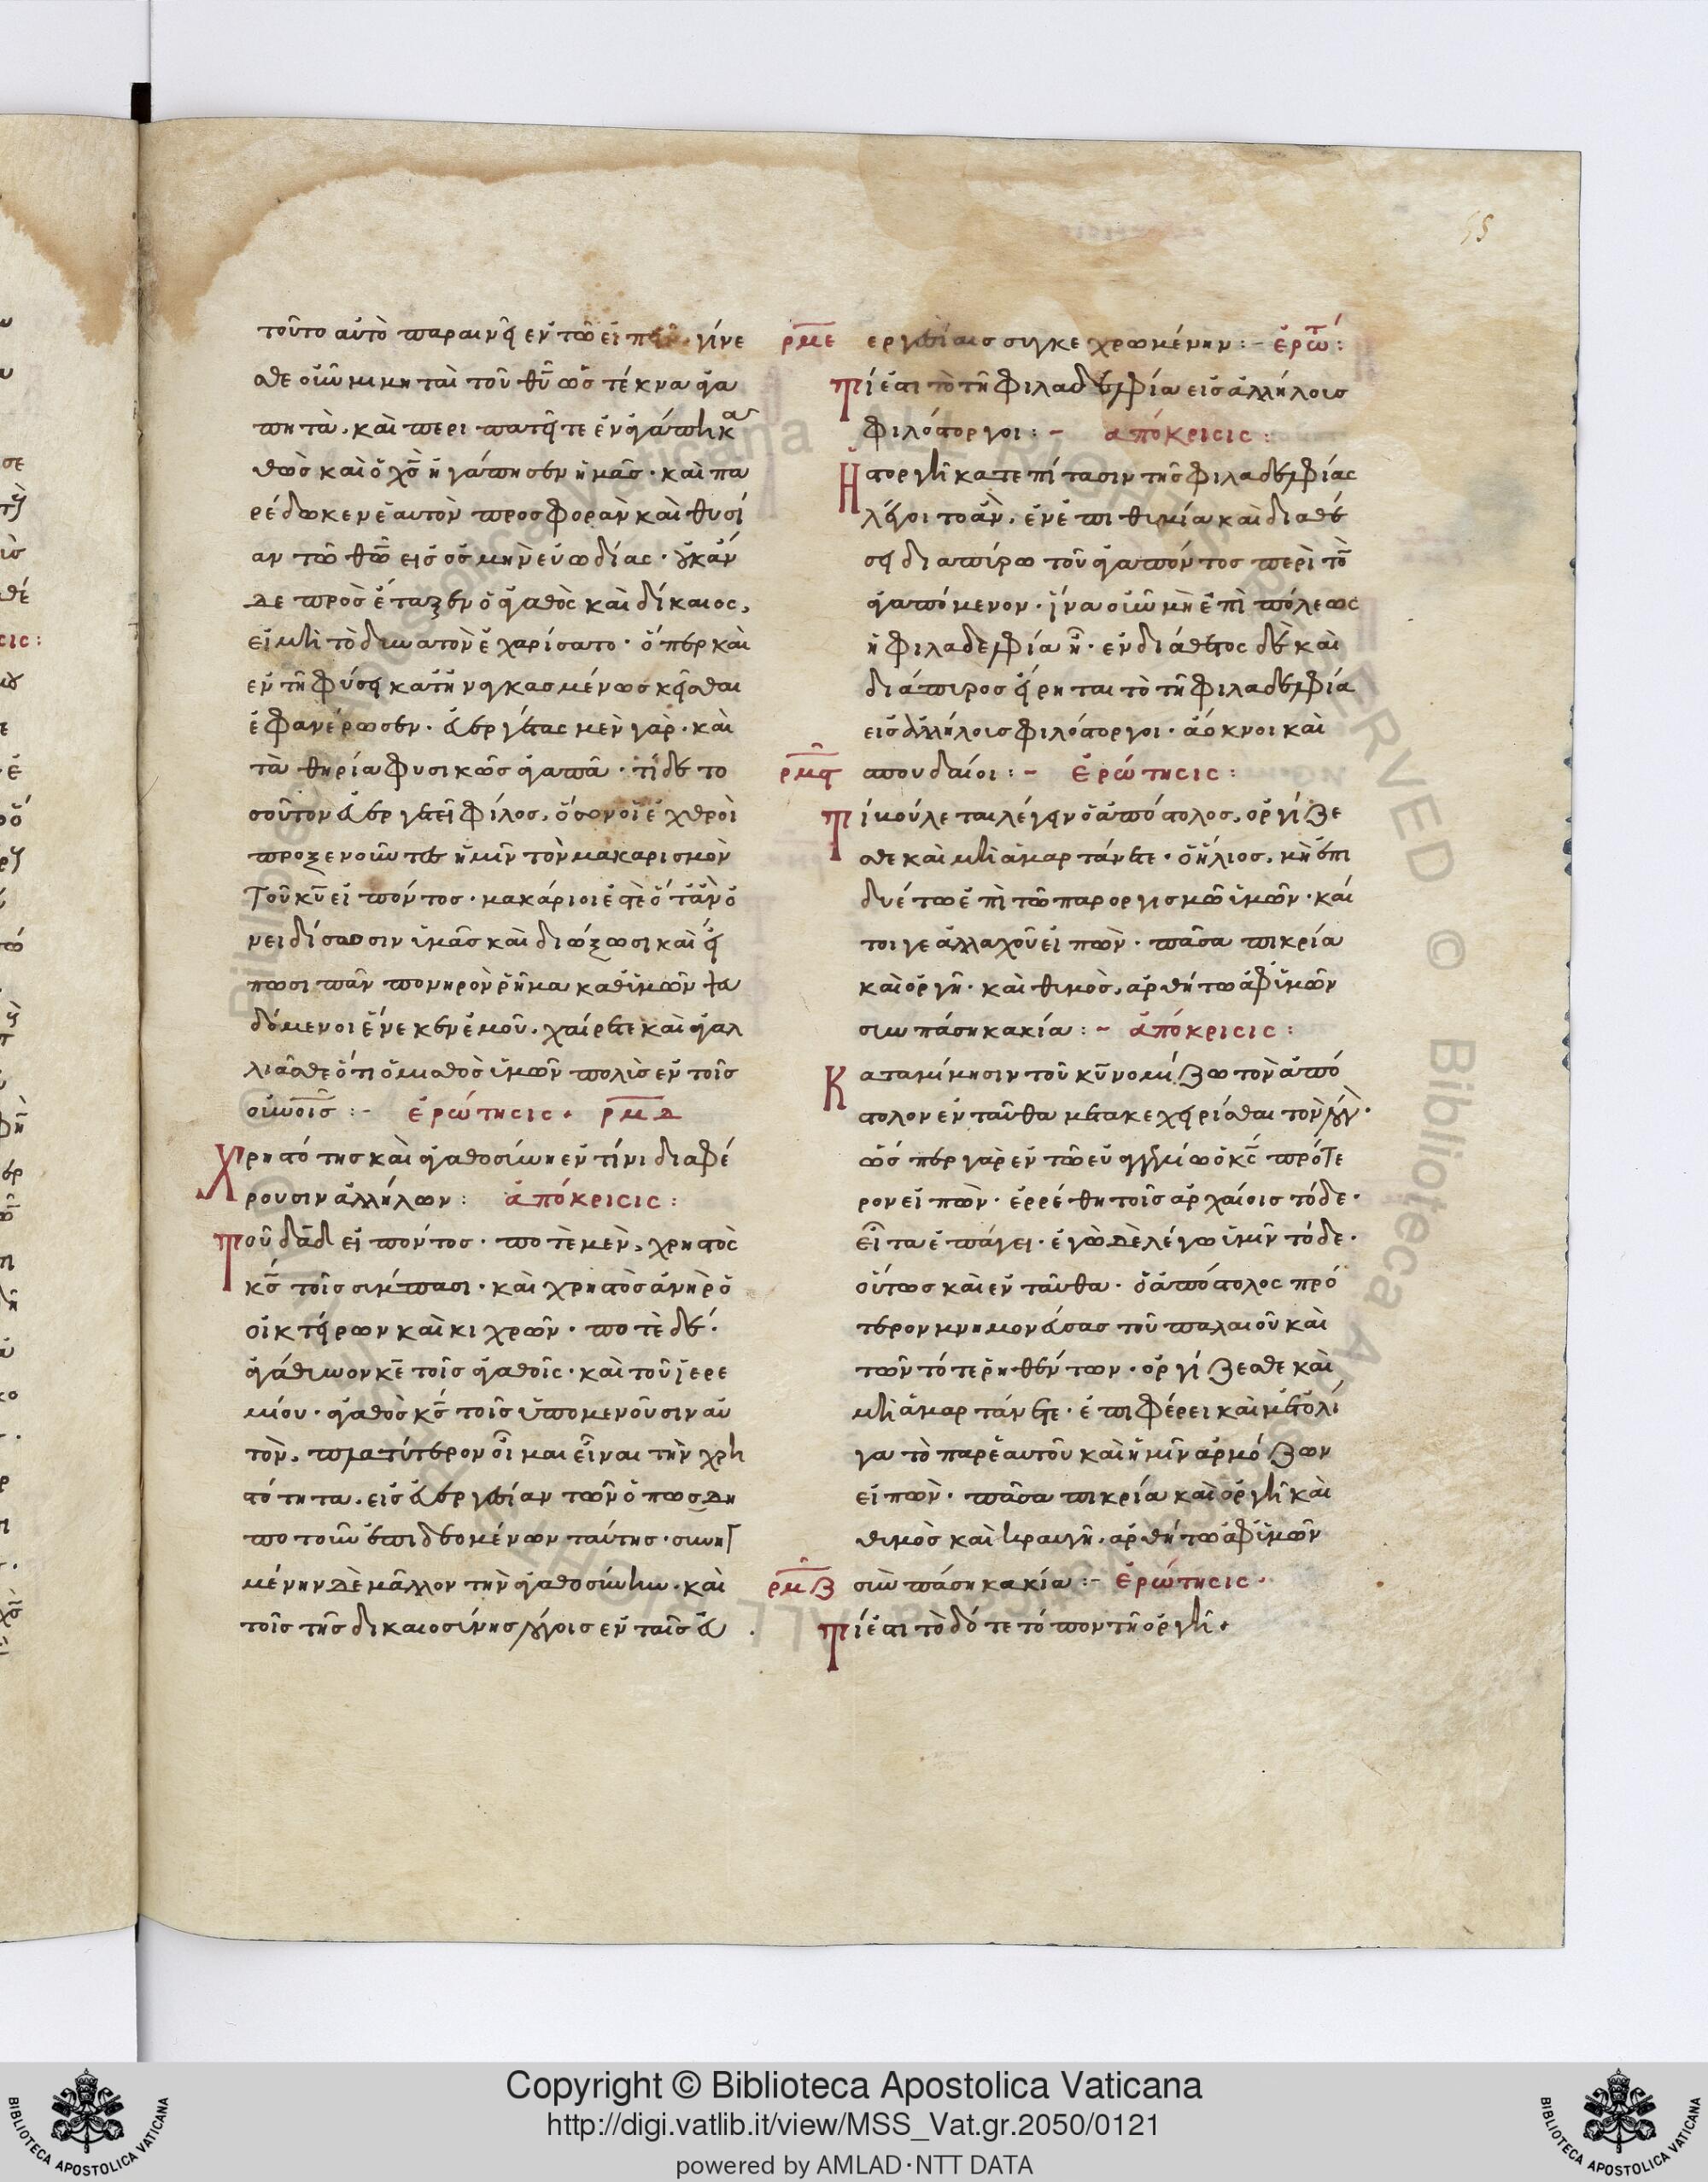 55
τοῦτο αὐτὸ παραινεῖ ἐν τῶ εἰπεῖν· γίνε
σθε οὖν μιμηταὶ τοῦ θῦ ὡς τέκνα ἀγα
πητὰ, καὶ περιπατεῖτε ἐν ἀγάπη κα
θὼς καὶ ὁ χς ἠγάπησεν ἡμᾶς· καὶ πα
ρέδωκεν ἑαυτὸν προσφορὰν καὶ θυσί
αν τῶ θῶ εἰς ὀσμὴν εὐωδίας· οὐκ ἂν
δὲ προσέταξεν ὁ ἀγαθὸς καὶ δίκαιος,
εἰ μὴ τὸ δυνατὸν ἐχαρίσατο· ὅπερ καὶ
ἐν τῆ φύσει κατηναγκασμένως κεῖσθαι
ἐφανέρωσεν· εὐεργέτας μὲν γὰρ· καὶ
τὰ θηρία φυσικῶς ἀγαπᾶ· τί δὲ το
σοῦτον εὐεργετεῖ φίλος, ὅσον οἱ ἐχθροὶ
προξενοῦντες ἡμῖν τὸν μακαρισμὸν
τοῦ κῦ εἰπόντος· μακάριοι ἐστὲ ὅταν ὀ
νειδίσωσιν ὑμᾶς καὶ διώξωσι καὶ εἴ
πωσι πᾶν πονηρὸν ῥῆμα καθ' ὑμῶν ψευ
δόμενοι ἕνεκεν ἐμοῦ, χαίρετε καὶ ἀγαλ
λιᾶσθε ὅτι ὁ μισθὸς ὑμῶν πολὺς ἐν τοῖς
οὐνοις :- ἐρώτησις · ρμδ
Χρηστότης καὶ ἀγαθοσύνη ἐν τίνι διαφέ
ρουσιν ἀλλήλων : ἀπόκρισις :
Τοῦ δαδ εἰπόντος· ποτὲ μὲν, χρηστὸς
κς τοῖς σύμπασι· καὶ χρηστὸς ἀνὴρ ὁ
οἰκτείρων καὶ κιχρῶν· ποτὲ δὲ·
ἀγάθυνον κε τοῖς ἀγαθοῖς· καὶ τοῦ ἱερε
μίου· ἀγαθὸς κς τοῖς ὑπομενοῦσιν αὐ
τὸν, πλατύτερον οἶμαι εἶναι τὴν χρη
στότητα, εἰς εὐεργεσίαν τῶν ὅπως δη
ποτοῦν ἐπιδεομένων ταύτης· συνηγ
μένην δὲ μᾶλλον τὴν ἀγαθοσύνην· καὶ
τοῖς τῆς δικαιοσύνης λόγοις ἐν ταῖς εὐ
ρμε εργεσίαις συγκεχρωμένην :- ἐρώτ :
Τί ἐστι τὸ τῆ φιλαδελφία εἰς ἀλλήλοις
φιλόστοργοι :- ἀπόκρισις :
Ἡ στοργὴ κατεπίτασιν τῆς φιλαδελφίας
λέγοιτο ἂν, ἐν ἐπιθυμία καὶ διαθέ
σει διαπύρω τοῦ ἀγαπόντος περὶ τὸ
ἀγαπόμενον· ἵνα οὖν μὴ ἐπὶ πόλεως
ἡ φιλαδελφία ἦ· ἐνδιάθετος δὲ καὶ
διάπυρος εἴρηται τὸ τῆ φιλαδελφία
εἰς ἀλλήλοις φιλόστοργοι· ἄοκνοι καὶ
ρμϛ σπουδαῖοι :- ἐρώτησις :
Τί βούλεται λέγειν ὁ ἀπόστολος, ὀργίζε
σθε καὶ μὴ ἁμαρτάνετε· ὁ ἥλιος, μὴ ἐπι
δυέτω ἐπὶ τῶ παροργισμῶ ὑμῶν· καί
τοι γε ἀλλαχοῦ εἰπὼν· πᾶσα πικρία
καὶ ὀργὴ· καὶ θυμὸς, ἀρθήτω ἀφ' ὑμῶν
σὺν πάση κακία :- ἀπόκρισις :
Κατα μίμησιν τοῦ κῦ νομίζω τὸν ἀπό
στολον ἐνταῦθα μετακεχειρίσθαι τὸν λόγον·
ὥσπερ γὰρ ἐν τῶ εὐαγγελίω ὁ κς πρότε
ρον εἰπὼν· ἐρρέθη τοῖς ἀρχαίοις τόδε·
εἶτα ἐπάγει· ἐγὼ δὲ λέγω ὑμῖν τόδε·
οὕτως καὶ ἐνταῦθα· ὁ ἀπόστολος πρό
τερον μνημονεύσας τοῦ παλαιοῦ καὶ
τῶν τότε ῥηθέντων· ὀργίζεσθε καὶ
μὴ ἁμαρτάνετε· ἐπιφέρει καὶ μετ' ὀλί
γα τὸ παρ' ἑαυτοῦ καὶ ἡμῖν ἁρμόζων
εἰπὼν· πᾶσα πικρία καὶ ὀργὴ καὶ
θυμὸς καὶ κραυγὴ, ἀρθήτω ἀφ' ὑμῶν
ρμζ σὺν πάση κακία :- ἐρώτησις ·
Τί ἐστι τὸ δότε τόπον τῆ ὀργῆ ·
Copyright © Biblioteca Apostolica Vaticana
http://digi.vatlib.it/view/MSS_Vat.gr.2050/0121
powered by AMLAD·NTT DATA
BIBLIOTECA APOSTOLICA VATICANA
BIBLIOTECA APOSTOLICA VATICANA